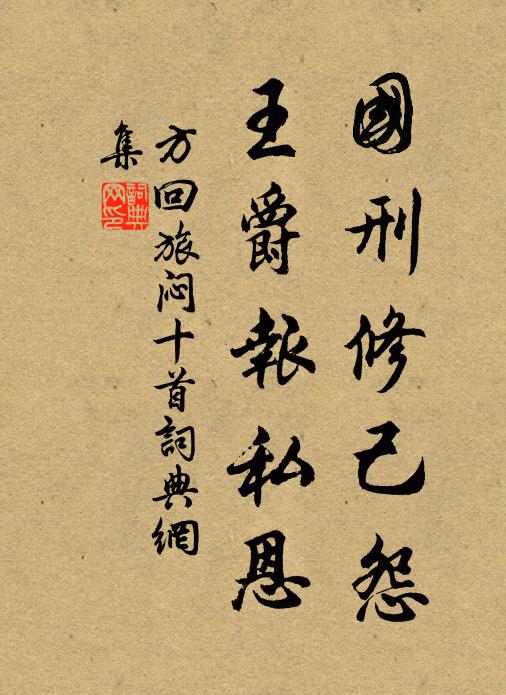 國刑修己怨
王爵報私恩
方回旅闷十首詞典網
集
詞典網印